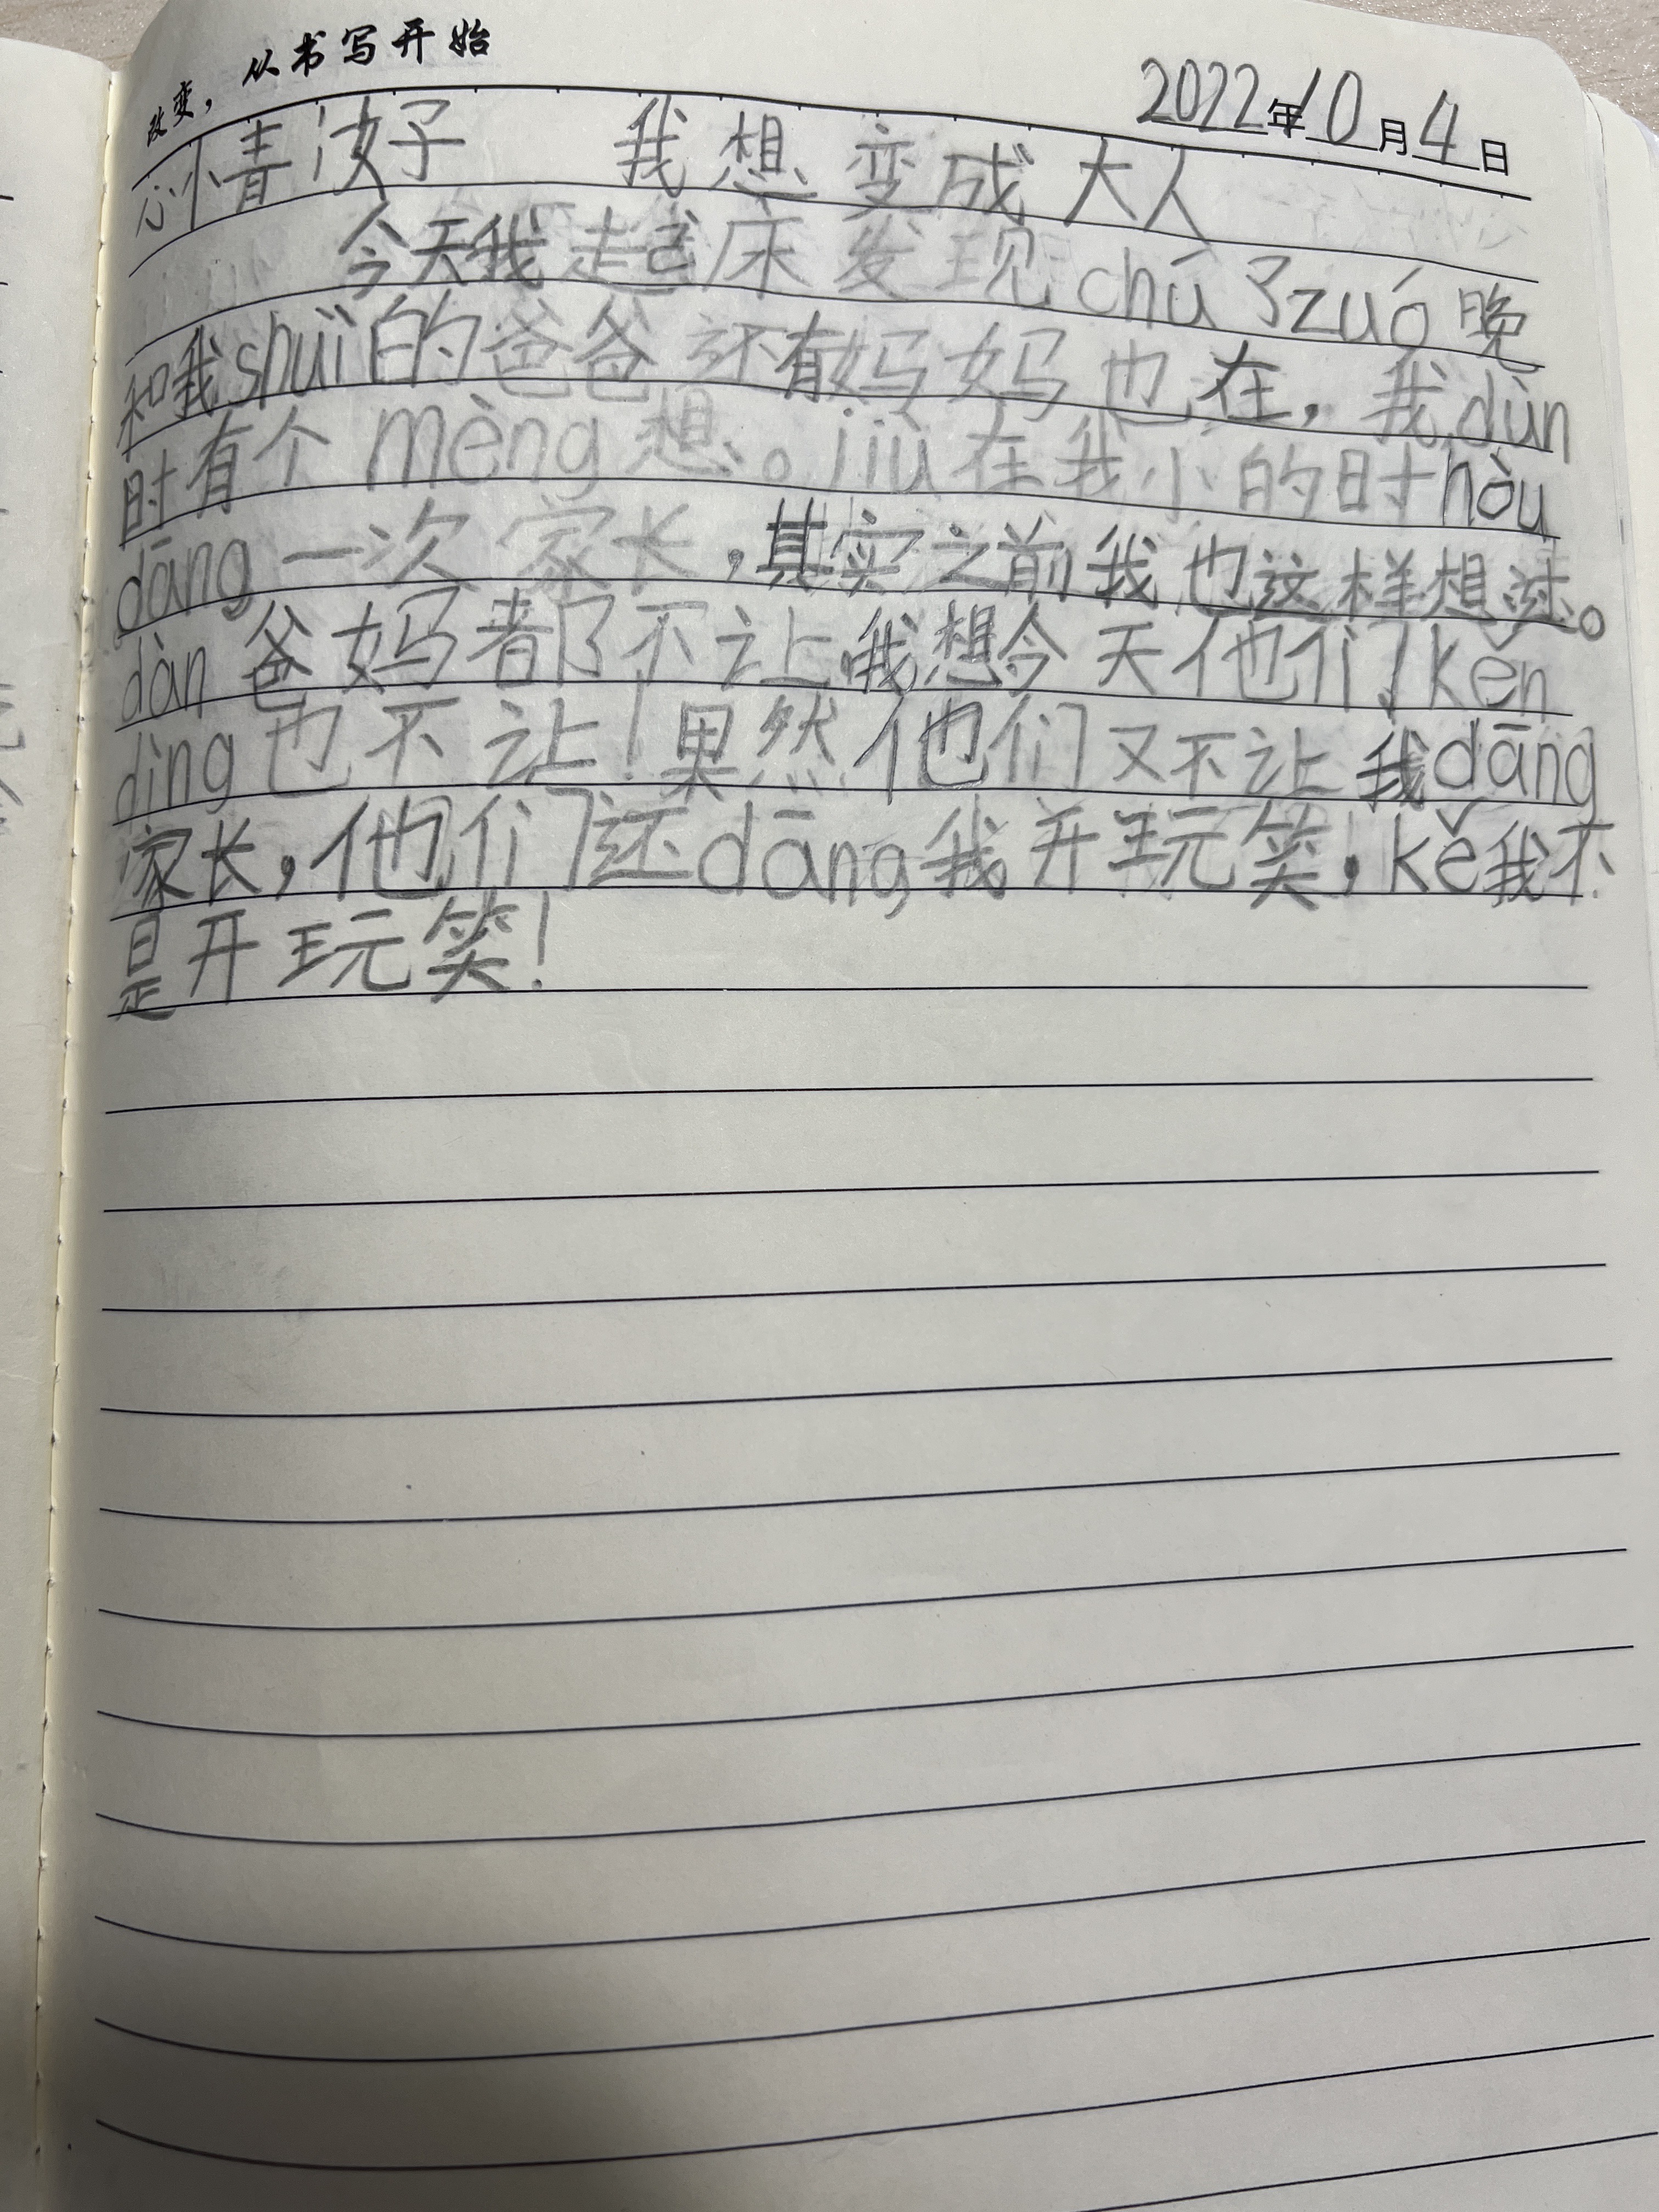 改变，从书写开始
2022年10月4日
心情 好 我想变成大人
今天我起床发现chú了zuó晚
和我shuì的爸爸还有妈妈也在，我dùn
时有个mèng想。jiù在我小的时hòu
dāng一次家长，其实之前我也这样想过。
dàn爸妈都不让我想今天他们kěn
dìng也不让！果然他们又不让我dāng
家长，他们还dāng我开玩笑，kě我不
是开玩笑！